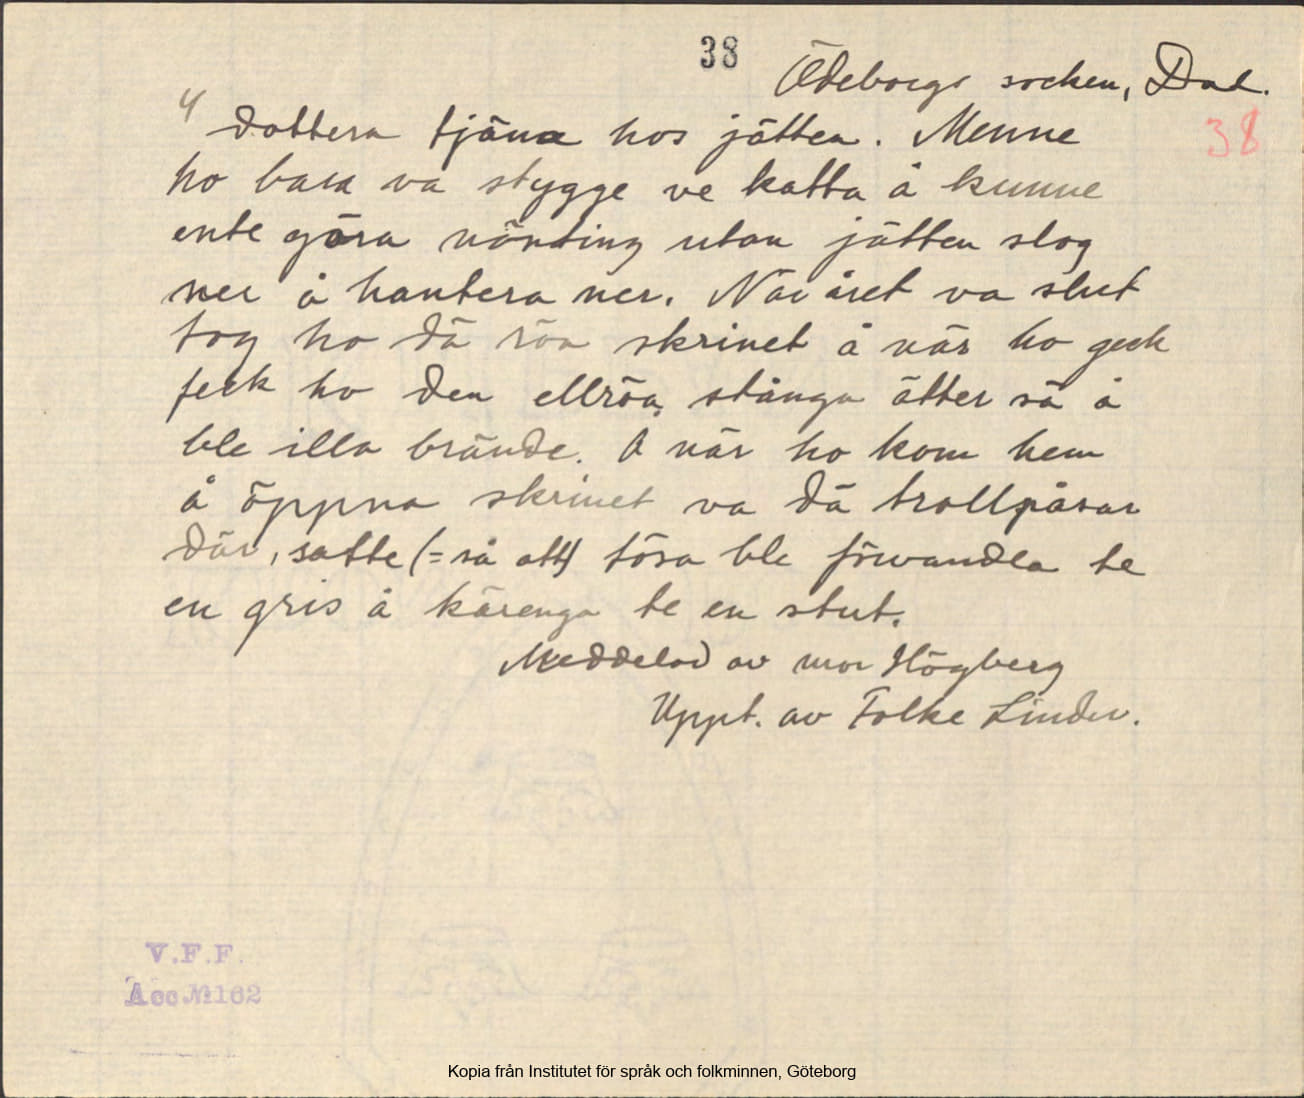 38
Ödeborgs socken, Dal.
4
38
dottera tjäna hos jätten. Menne
ho bara va stygge ve katta å kunne
ente göra nönting utan jätten slog
ner å hantera ner. När året va slut
tog ho dä röa skrinet å när ho geck
feck ho den ellröa stånga ätter sä å
ble illa brände. Å när ho kom hem
å öppna skrinet va dä trollpåsar
där, satte (= så att) tösa ble förvandla te
en gris å kärenga te en stut.
Meddelad av mor Högberg
Uppt. av Folke Linder.
V.F.F.
Acc № 162
Kopia från Institutet för språk och folkminnen, Göteborg